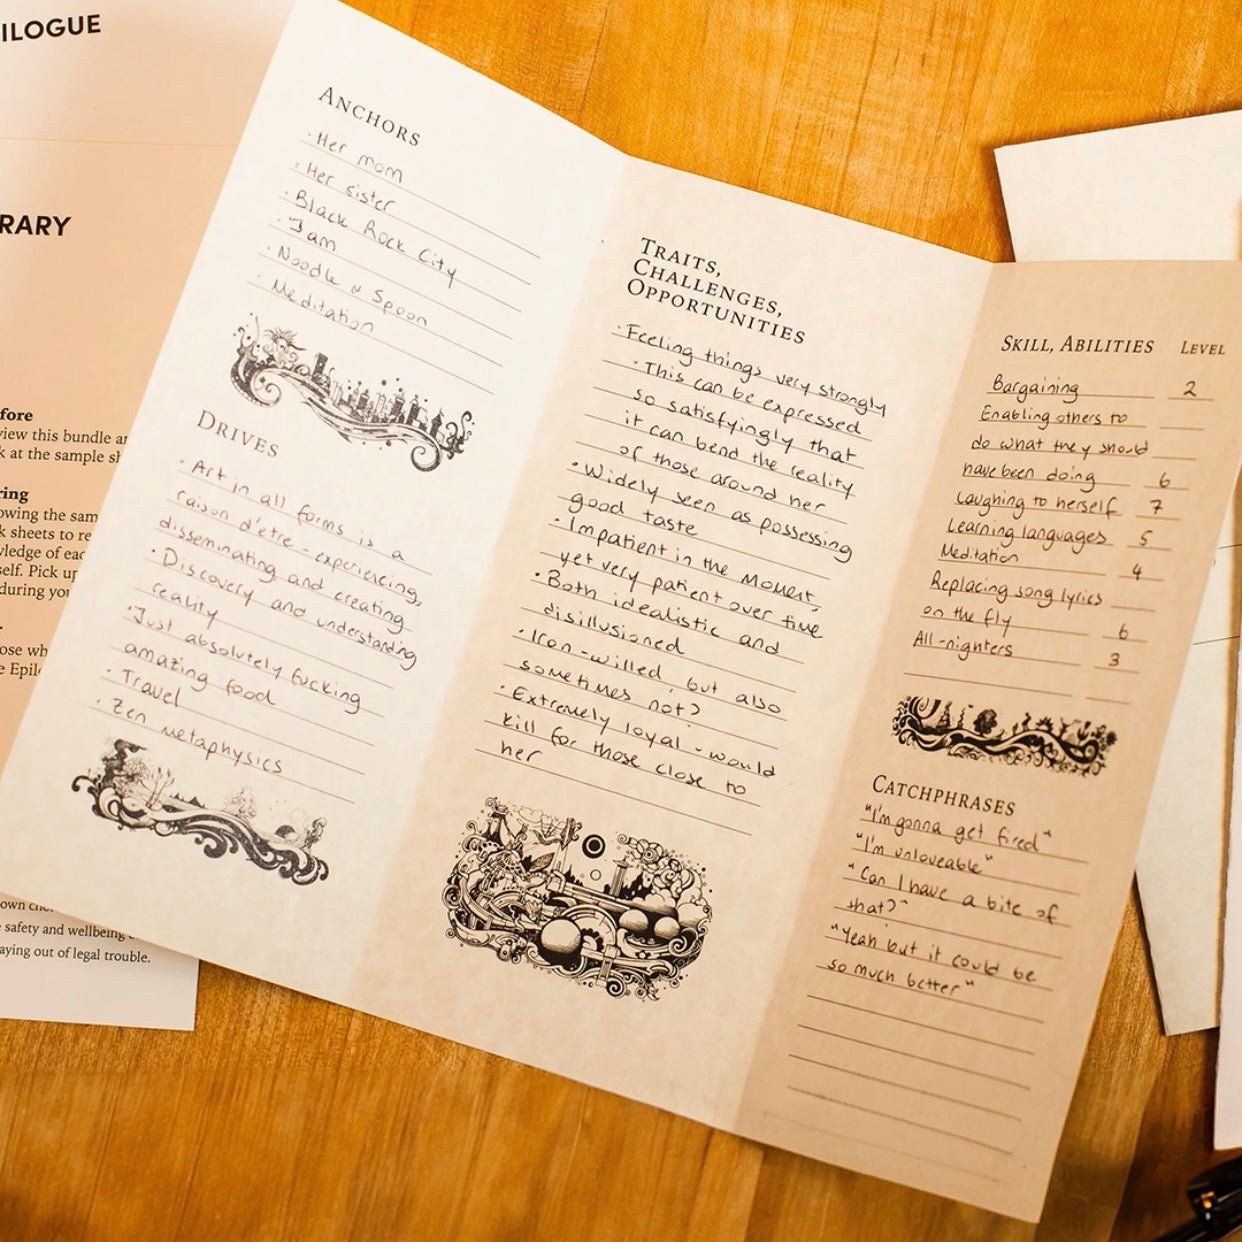 ILOGUE
RARY
fore
view this bundle ar
k at the sample sh
ring
owing the sam
k sheets to re
wledge of eac
self. Pick up
during you
ose wh
e Epil
own
safety and wellbeing
aying out of legal trouble.
ANCHORS
· Her mom
· Her sister
· Black Rock City
· Jam
· Noodle & Spoon
· Meditation
DRIVES
· Art in all forms is a
raison d'être - experiencing,
disseminating and creating
· Discovery and understanding
reality
· Just absolutely fucking
amazing food
· Travel
· Zen metaphysics
TRAITS,
CHALLENGES,
OPPORTUNITIES
· Feeling things very strongly
· This can be expressed
so satisfyingly that
it can bend the reality
of those around her
· Widely seen as possessing
good taste
· Impatient in the moment,
yet very patient over time
· Both idealistic and
disillusioned
· Iron-willed, but also
sometimes not?
· Extremely loyal - would
kill for those close to
her
SKILL, ABILITIES LEVEL
Bargaining 2
Enabling others to
do what they should
have been doing 6
Laughing to herself 7
Learning languages 5
Meditation 4
Replacing song lyrics
on the fly 6
All-nighters 3
CATCHPHRASES
"I'm gonna get fired"
"I'm unloveable"
"Can I have a bite of
that?"
"Yeah but it could be
so much better"